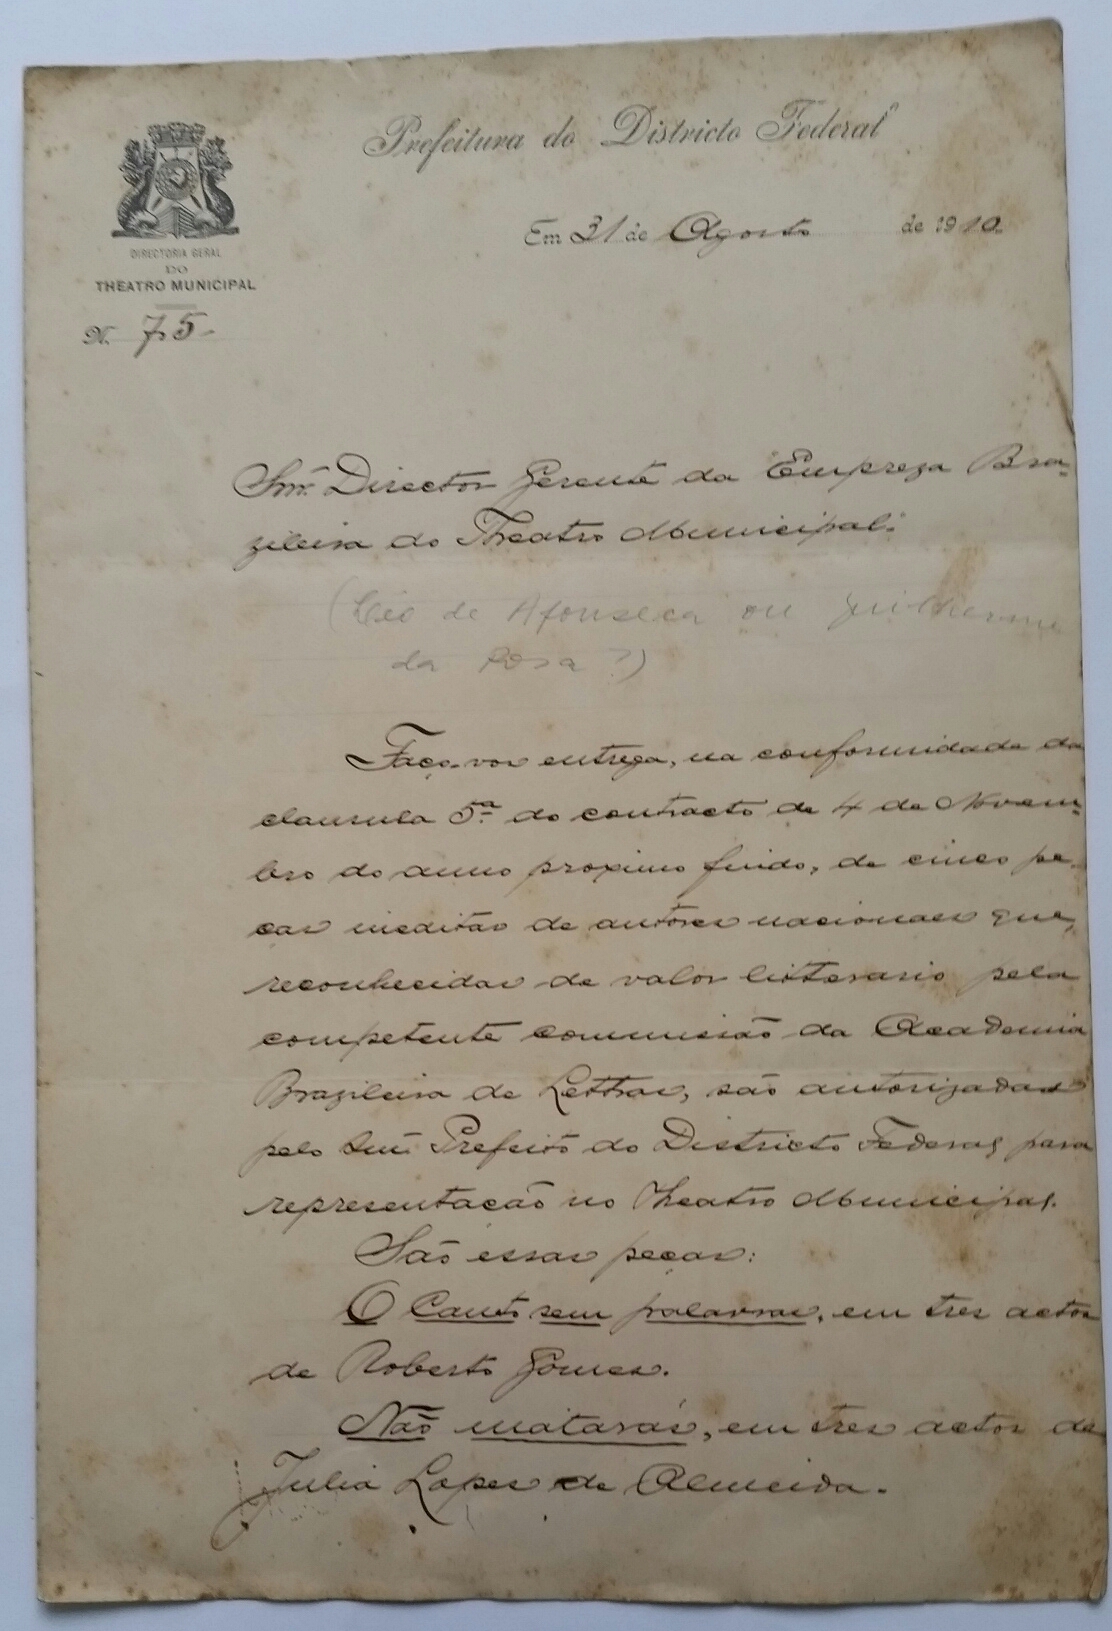 Prefeitura do Districto Federal
Em 31 de Agosto de 1910.
DIRECTORIA GERAL
DO
THEATRO MUNICIPAL
N. 75-
Snr. Director Gerente da Empreza Bra-
zileira do Theatro Municipal.
(Léo de Afonseca ou Guilherme
da Rosa?)
Faço-vos entrega, na conformidade da
clausula 5ª do contracto de 4 de Novem-
bro do anno proximo findo, de cinco pe-
ças ineditas de autores nacionaes que,
reconhecidas de valor litterario pela
competente commissão da Academia
Brazileira de Lettras, são autorizadas
pelo Snr. Prefeito do Districto Federal para
representação no Theatro Municipal.
São essas peças:
O Canto sem palavras, em tres actos
de Roberto Gomes.
Não matarás, em tres actos de
Julia Lopes de Almeida.